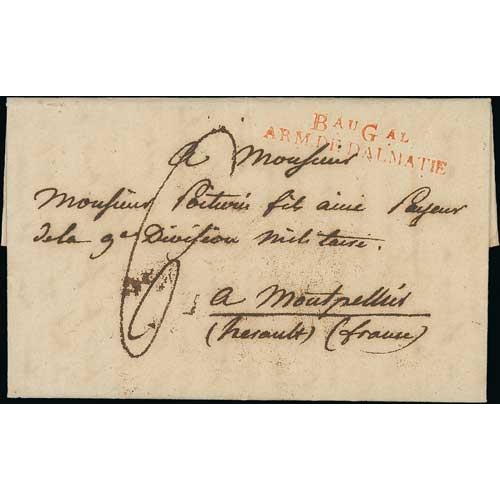 BAU GAL
ARM DE DALMATIE
A Monsieur
Monsieur Poitevin fils ainé Payeur
de la 9e Division militaire.
6
a Montpellier
(herault) (france)